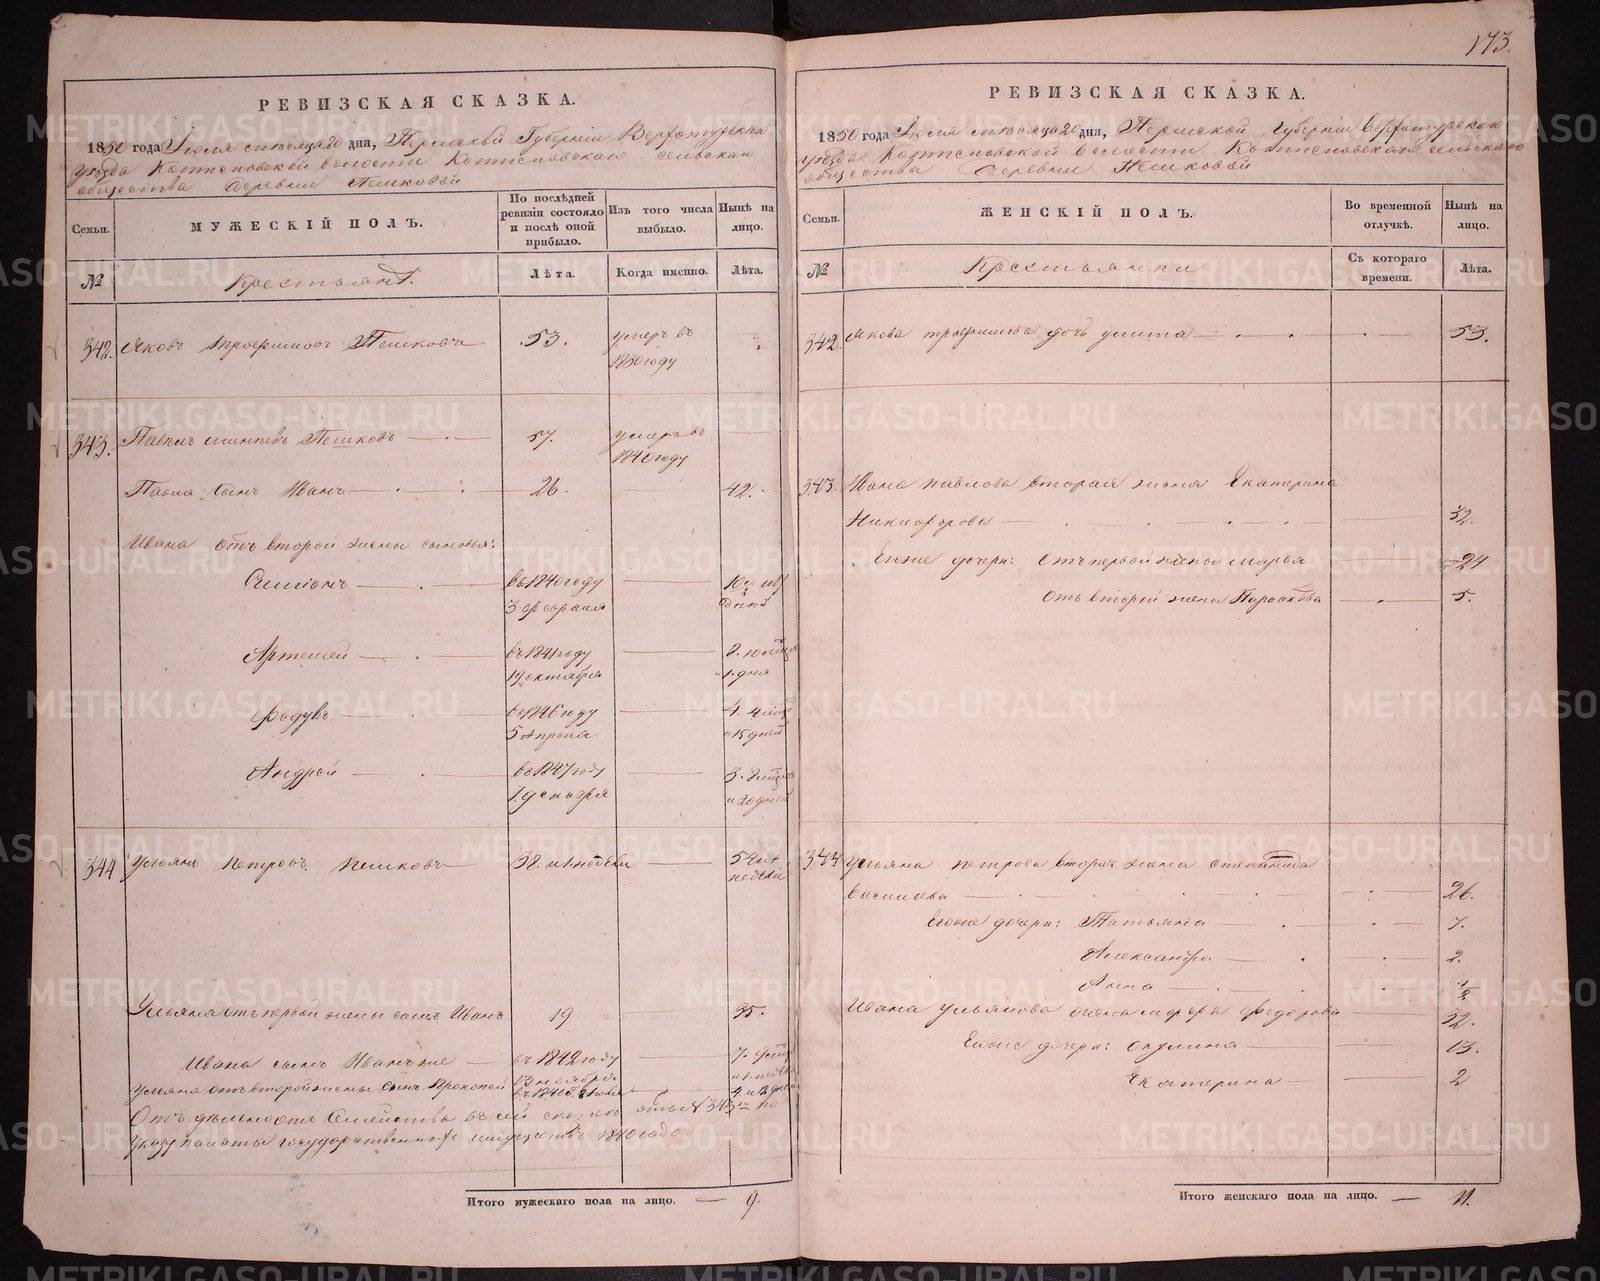 173.
РЕВИЗСКАЯ СКАЗКА.
1850 года Июля месяца 20 дня, Пермской Губернiи Верхотурскаго
уезда Коптеловской волости Коптеловскаго сельскаго
общества деревни Пешковой
Семьи.
МУЖЕСКIЙ ПОЛЪ.
По послѣдней ревизiи состояло и послѣ оной прибыло.
Изъ того числа выбыло.
Нынѣ на лицо.
№
Крестьянъ.
Лѣта.
Когда именно.
Лѣта.
342. Яковъ Трофимовъ Пешковъ 53. умеръ въ
1830 году
343. Павелъ Пешковъ 57. умеръ въ
1840 году
Павла сынъ Иванъ 26. 42.
Ивана отъ второй жены сыновья:
Симiонъ въ 1840 году
3 февраля дней
Артемей въ 1841 году 8.
19 октября 1. дня
Федулъ въ 1846 году 4.
5 Апреля и 15 дней
Андрей въ 1847 году 3.
1 декабря и 20 дней
344 Ульянъ Петровъ Пешковъ 38. и 1 недели 54 и 1
недели
Ульяна отъ первой жены сынъ Иванъ 19 35.
Ивана сынъ Иванъ же въ 1842 году 7.
13 ноября
Ульяна отъ второй жены сынъ Прокопей
Отъ Семейства въ сей
указу палаты государственныхъ имуществъ 1840 года
Итого мужескаго пола на лицо. — 9.
РЕВИЗСКАЯ СКАЗКА.
1850 года Июля месяца 20 дня, Пермской Губернiи Верхотурскаго
уезда Коптеловской волости Коптеловскаго сельскаго
общества деревни Пешковой
Семьи.
ЖЕНСКIЙ ПОЛЪ.
Во временной отлучкѣ.
Нынѣ на лицо.
№
Крестьянки
Съ котораго времени.
Лѣта.
342. Якова Трофимова дочь 53.
343. Ивана Павлова вторая жена Екатерина
Никифорова 32.
Егоже дочери: Отъ первой жены Марья 24
Отъ второй жены Парасковья 5.
344 Ульяна Петрова вторая жена Степанида
Васильева 26.
Егоже дочери: Татьяна 7.
Александра 2.
Анна
Ивана Ульянова жена Федорова 32.
Егоже дочери: 13.
Екатерина 2
Итого женскаго пола на лицо. — 11.
METRIKI.GASO-URAL.RU